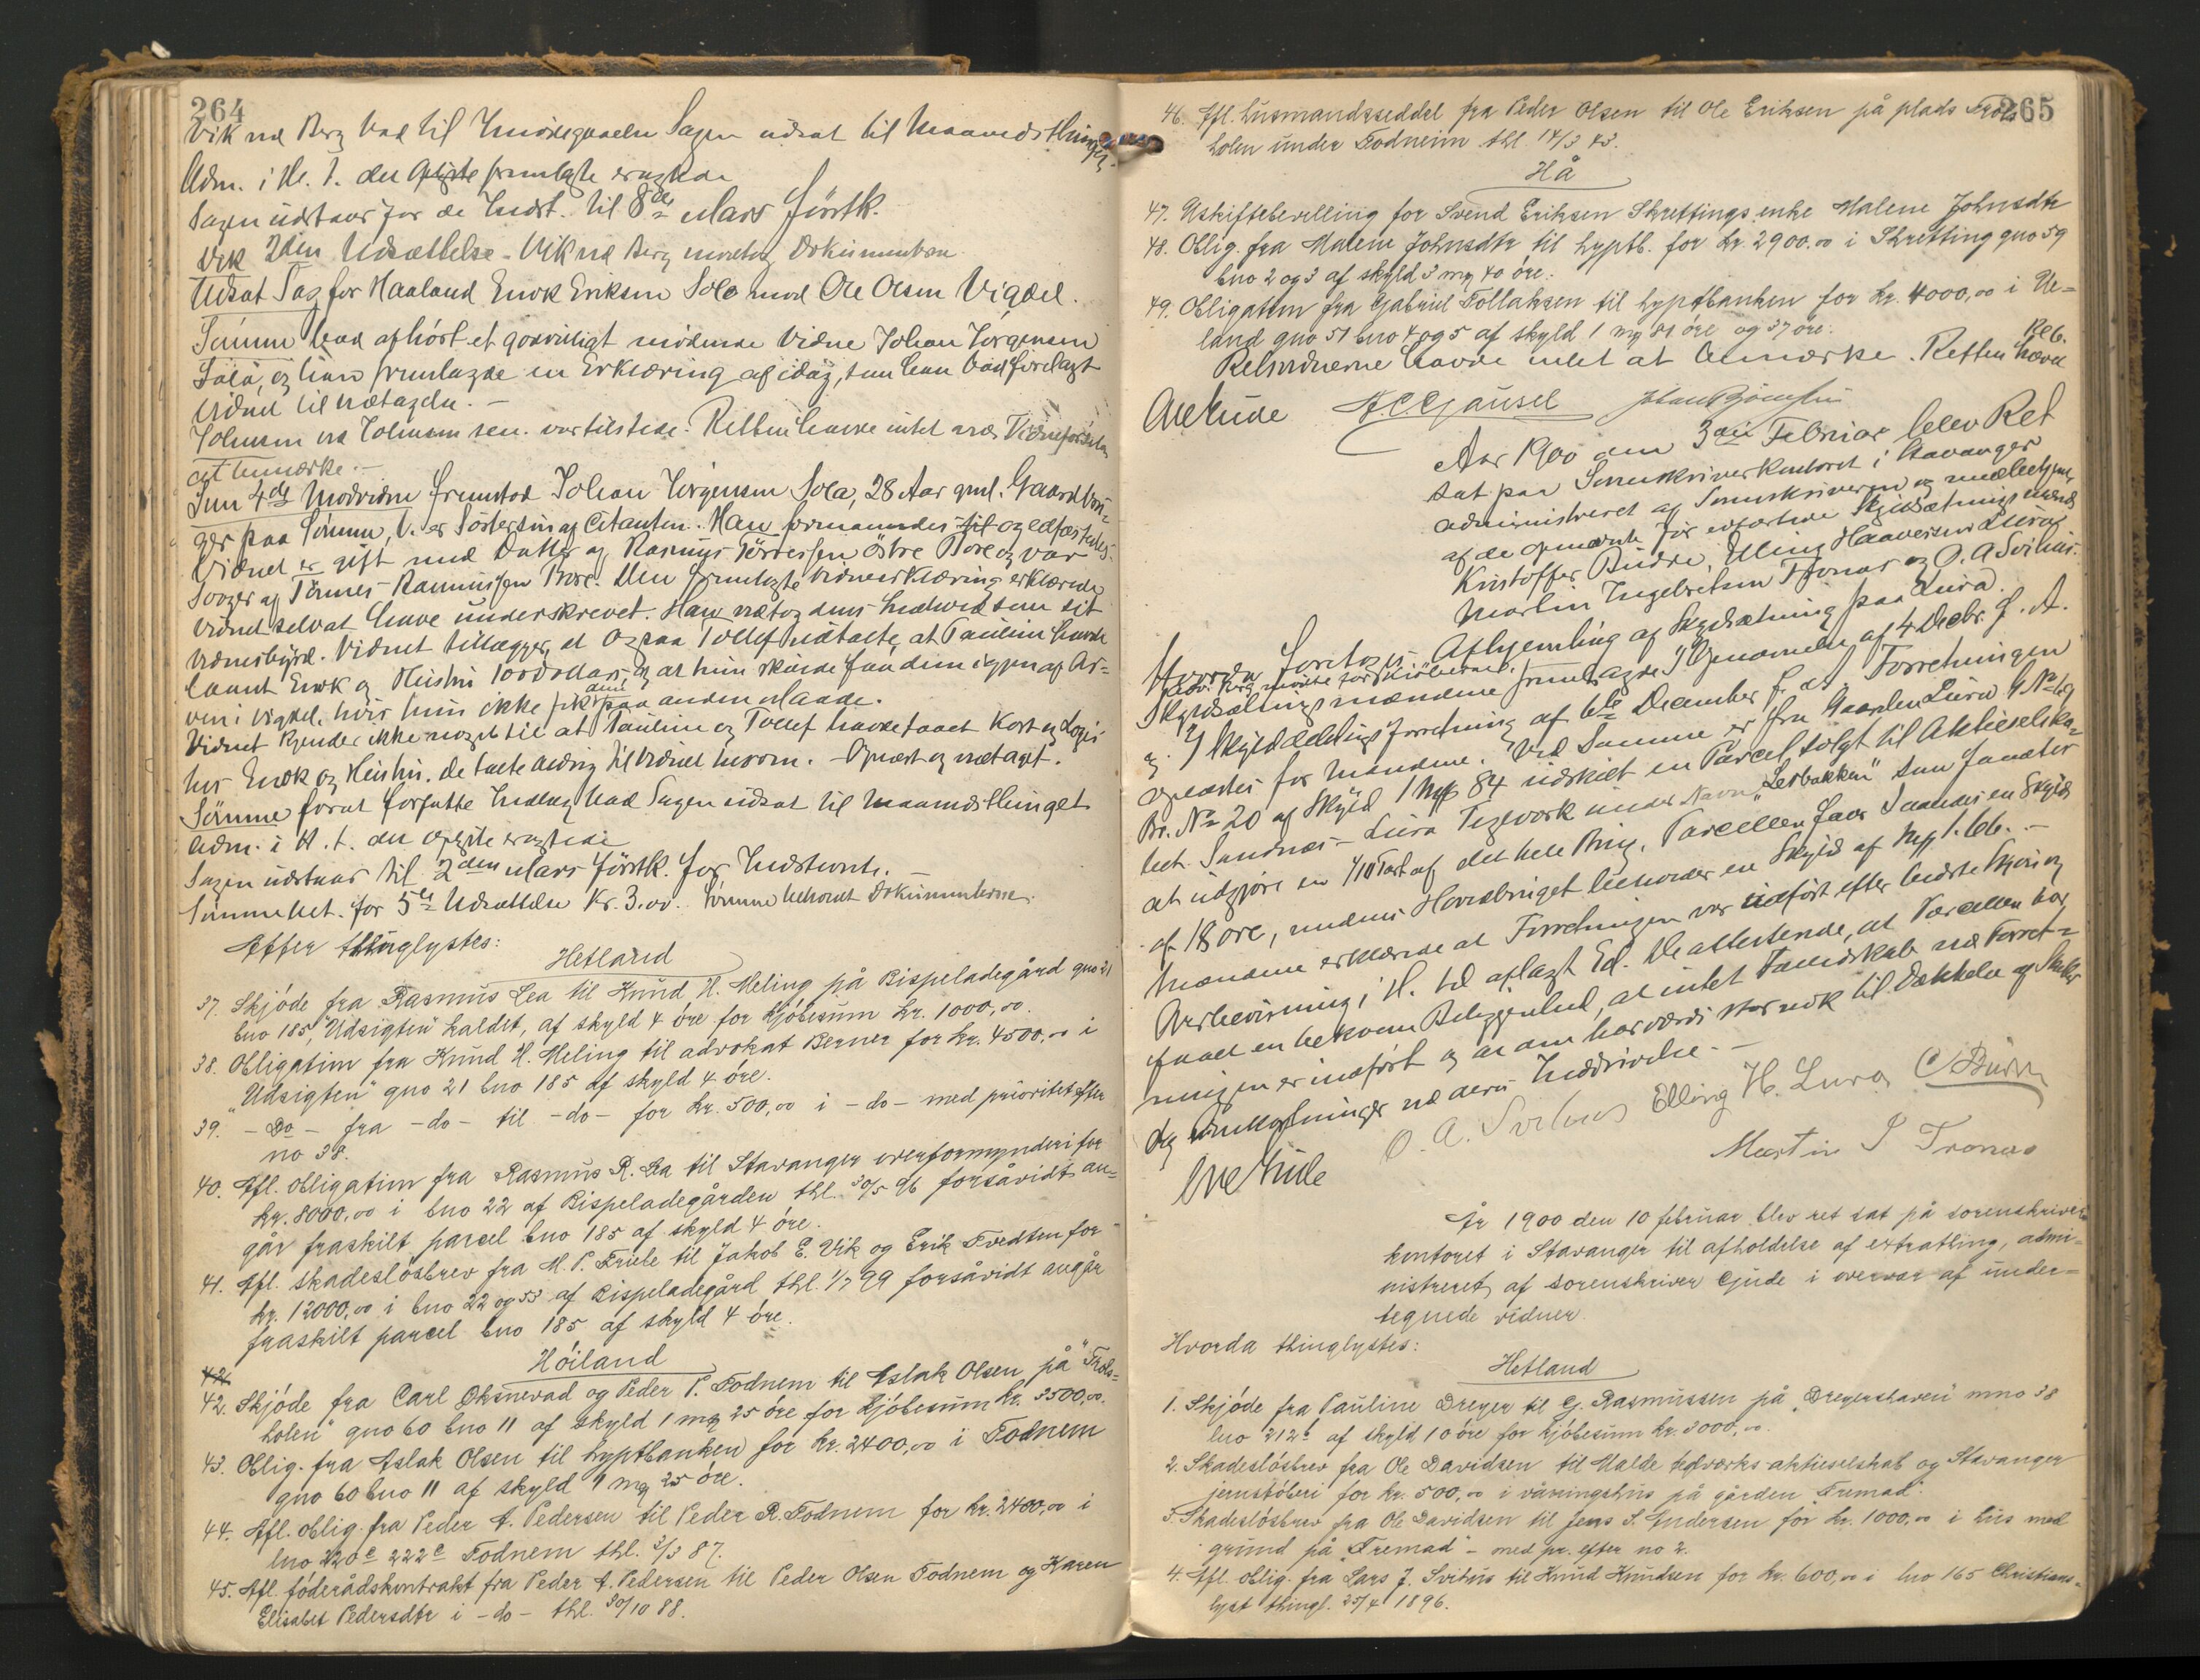 264
Vik ved Berg bad til Imødegaaelse Sagen udsat til Maanedsthinget.
Adm. i H. t. det oplyste fremlagte eragtede
Sagen udstaar for de Indst. til 8de Mars førstk.
Vik 2den Udsættelse. Vik ved Berg modtog Dokumenterne
Udsat Sag for Haaland Enok Eriksen Sole mod Ole Olsen Vigdel.
Sømme bad afhørt et godvilligt mødende Vidne Johan Jørgensen
Sola, og han fremlagde en Erklæring af idag, som han bad forelagt
Vidnet til vedtagelse. —
Johnsen ved Johnsen sen. var tilstede. Retten havde intet ved Vidneførselen
at bemærke. —
Som 4de Modvidne fremstod Johan Jørgensen Sola, 28 Aar gml. Gaardbru-
ger paa Sømme, V. er Søstersøn af Citanten. Han formanedes til og edfæstedes.
Vidnet er gift med Datter af Rasmus Tørresen østre Bore og var
Svoger af Tønnes Rasmussen Bore. Den fremlagte Vidneerklæring erklærede
Vidnet selv at have underskrevet. Han vedtog dens Indhold som sit
Vidnesbyrd. Vidnet tillægger, at ogsaa Tollef udtalte, at Pauline havde
laant Enok og Hustru 100 Dollars, og at hun skulde faa dem igjen af Ar-
ven i Vigdel, hvis hun ikke fik dem paa anden Maade.
Vidnet kjender ikke noget til at Pauline og Tollef havde faaet Kost og Logis
hos Enok og Hustru. De talte aldrig til Vidnet herom. — Oplæst og vedtaget.
Sømme forat forfatte Indlæg bad Sagen udsat til Maanedsthinget
Adm. i H. t. det oplyste eragtede
Sagen udstaar til 2den Mars førstk. for Indstevnte.
Sømme bet. for 5te Udsættelse Kr. 3.00. Sømme beholdt Dokumenterne.
Efter thinglystes:
Hetland
37. Skjøde fra Rasmus Lea til Knud H. Meling på Bispeladegård gno 21
bno 185, "Udsigten" kaldet, af skyld 4 øre for kjøbesum kr. 1000,00.
38. Obligation fra Knud H. Meling til advokat Berner for kr. 4500,00 i
"Udsigten" gno 21 bno 185 af skyld 4 øre.
39. — Do — fra — do — til — do — for kr. 500,00 i — do — med prioritet efter
no 38.
40. Afl. obligation fra Rasmus R. Lea til Stavanger overformynderi for
kr. 8000,00 i bno 22 af Bispeladegården thl. 30/5 96 forsåvidt an-
går fraskilt parcel bno 185 af skyld 4 øre.
41. Afl. skadesløsbrev fra M. P. Friele til Jakob E. Vik og Erik Tvedten for
kr. 12000,00 i bno 22 og 53 af Bispeladegård thl. 1/7 99 forsåvidt angår
fraskilt parcel bno 185 af skyld 4 øre.
Høiland
42. Skjøde fra Carl Oksnevad og Peder P. Fodnem til Aslak Olsen på "Trols-
holen" gno 60 bno 11 af skyld 1 mrk 25 øre for kjøbesum kr. 3500,00.
43. Oblig. fra Aslak Olsen til hyptbanken for kr. 2400,00 i Fodnem
gno 60 bno 11 af skyld 1 mrk 25 øre.
44. Afl. oblig. fra Peder A. Pedersen til Peder R. Fodnem for kr. 2400,00 i
lno 220c 222c Fodnem thl. 3/3 87.
45. Afl. føderådskontrakt fra Peder A. Pedersen til Peder Olsen Fodnem og Karen
Elisabet Pedersdtr i — do — thl. 30/10 88.
265
46. Afl. husmandsseddel fra Peder Olsen til Ole Eriksen på plads Trols-
holen under Fodneim thl. 14/3 43.
Hå
47. Uskiftebevilling for Svend Eriksen Skrettings enke Malene Johnsdtr
48. Oblig. fra Malene Johnsdtr til hyptb. for kr. 2900.00 i Skretting gno 59
bno 2 og 3 af skyld 3 mrk 40 øre.
49. Obligation fra Gabriel Tollaksen til hyptbanken for kr. 4000,00 i Ue-
land gno 51 bno 4 og 5 af skyld 1 mrk 81 øre og 37 øre.
Retsvidnerne havde intet at bemærke. Retten hævet
Ove Gude A. C. Gausel
Aar 1900 den 3die Februar blev Ret
sat paa Sorenskriverkontoret i Stavanger
administreret af Sorenskriveren og medbetjent
af de opnævnte før edfæstede Skyldsætningsmænd
Kristoffer Budre, Elling Haaversen Lura,
Martin Ingebretsen Tronæs og O. A. Svihus.
Hvorda Foretoges Afhjemling af Skyldsætning paa Lura.
Skyldsætningsmændene fremlagde 1) Opnævnelse af 4 Decbr. f. A.
og 2) Skylddelingsforretning af 6te December f. A. Forretningen
oplæstes for Mændene. Ved Samme er fra Gaarden Lura G No 69
Br. No 20 af Skyld Mrk 1 84 udskilt en Parcel solgt til Aktieselska-
bet Sandnes — Lura Teglverk under Navn "Lerbakken" som fandtes
at udgjøre en 1/10 Part af det hele Brug. Parcellen faar saaledes en Skyld
af 18 øre, medens Hovedbruget beholder en Skyld af Mrk 1.66. —
Mændene erklærede at Forretningen var udført efter bedste Skjøn og
Overbevisning i H. til aflagt Ed. De attesterede, at Parcellen har
faaet en bekvem Beliggenhed, at intet Fællesskab ved Forret-
ningen er indført og at den har værdi stor nok til Dækkelse af Skatter
og Omkostninger ved deres Inddrivelse. —
Ove Gude O. A. Svihus Elling H. Lura C Budre
Martin I Tronæs
År 1900 den 10 februar blev ret sat på sorenskriver-
kontoret i Stavanger til afholdelse af extrathing, admi-
nistreret af sorenskriver Gude i overvær af under-
tegnede vidner.
Hvorda thinglystes:
Hetland
1. Skjøde fra Pauline Dreyer til G. Rasmussen på "Dreyershaven" mno 38
lno 212c af skyld 10 øre for kjøbesum kr. 3000,00.
2. Skadesløsbrev fra Ole Davidsen til Malde teglværks aktieselskab og Stavanger
jernstøberi for kr. 500,00 i våningshus på gården "Fremad".
3. Skadesløsbrev fra Ole Davidsen til Jens S. Andersen for kr. 1000,00 i hus med
grund på "Fremad" — med pr. efter no 2.
4. Afl. oblig. fra Lars J. Svihus til Knud Knudsen for kr. 600,00 i lno 165 Christians-
lyst thingl. 25/4 1896.